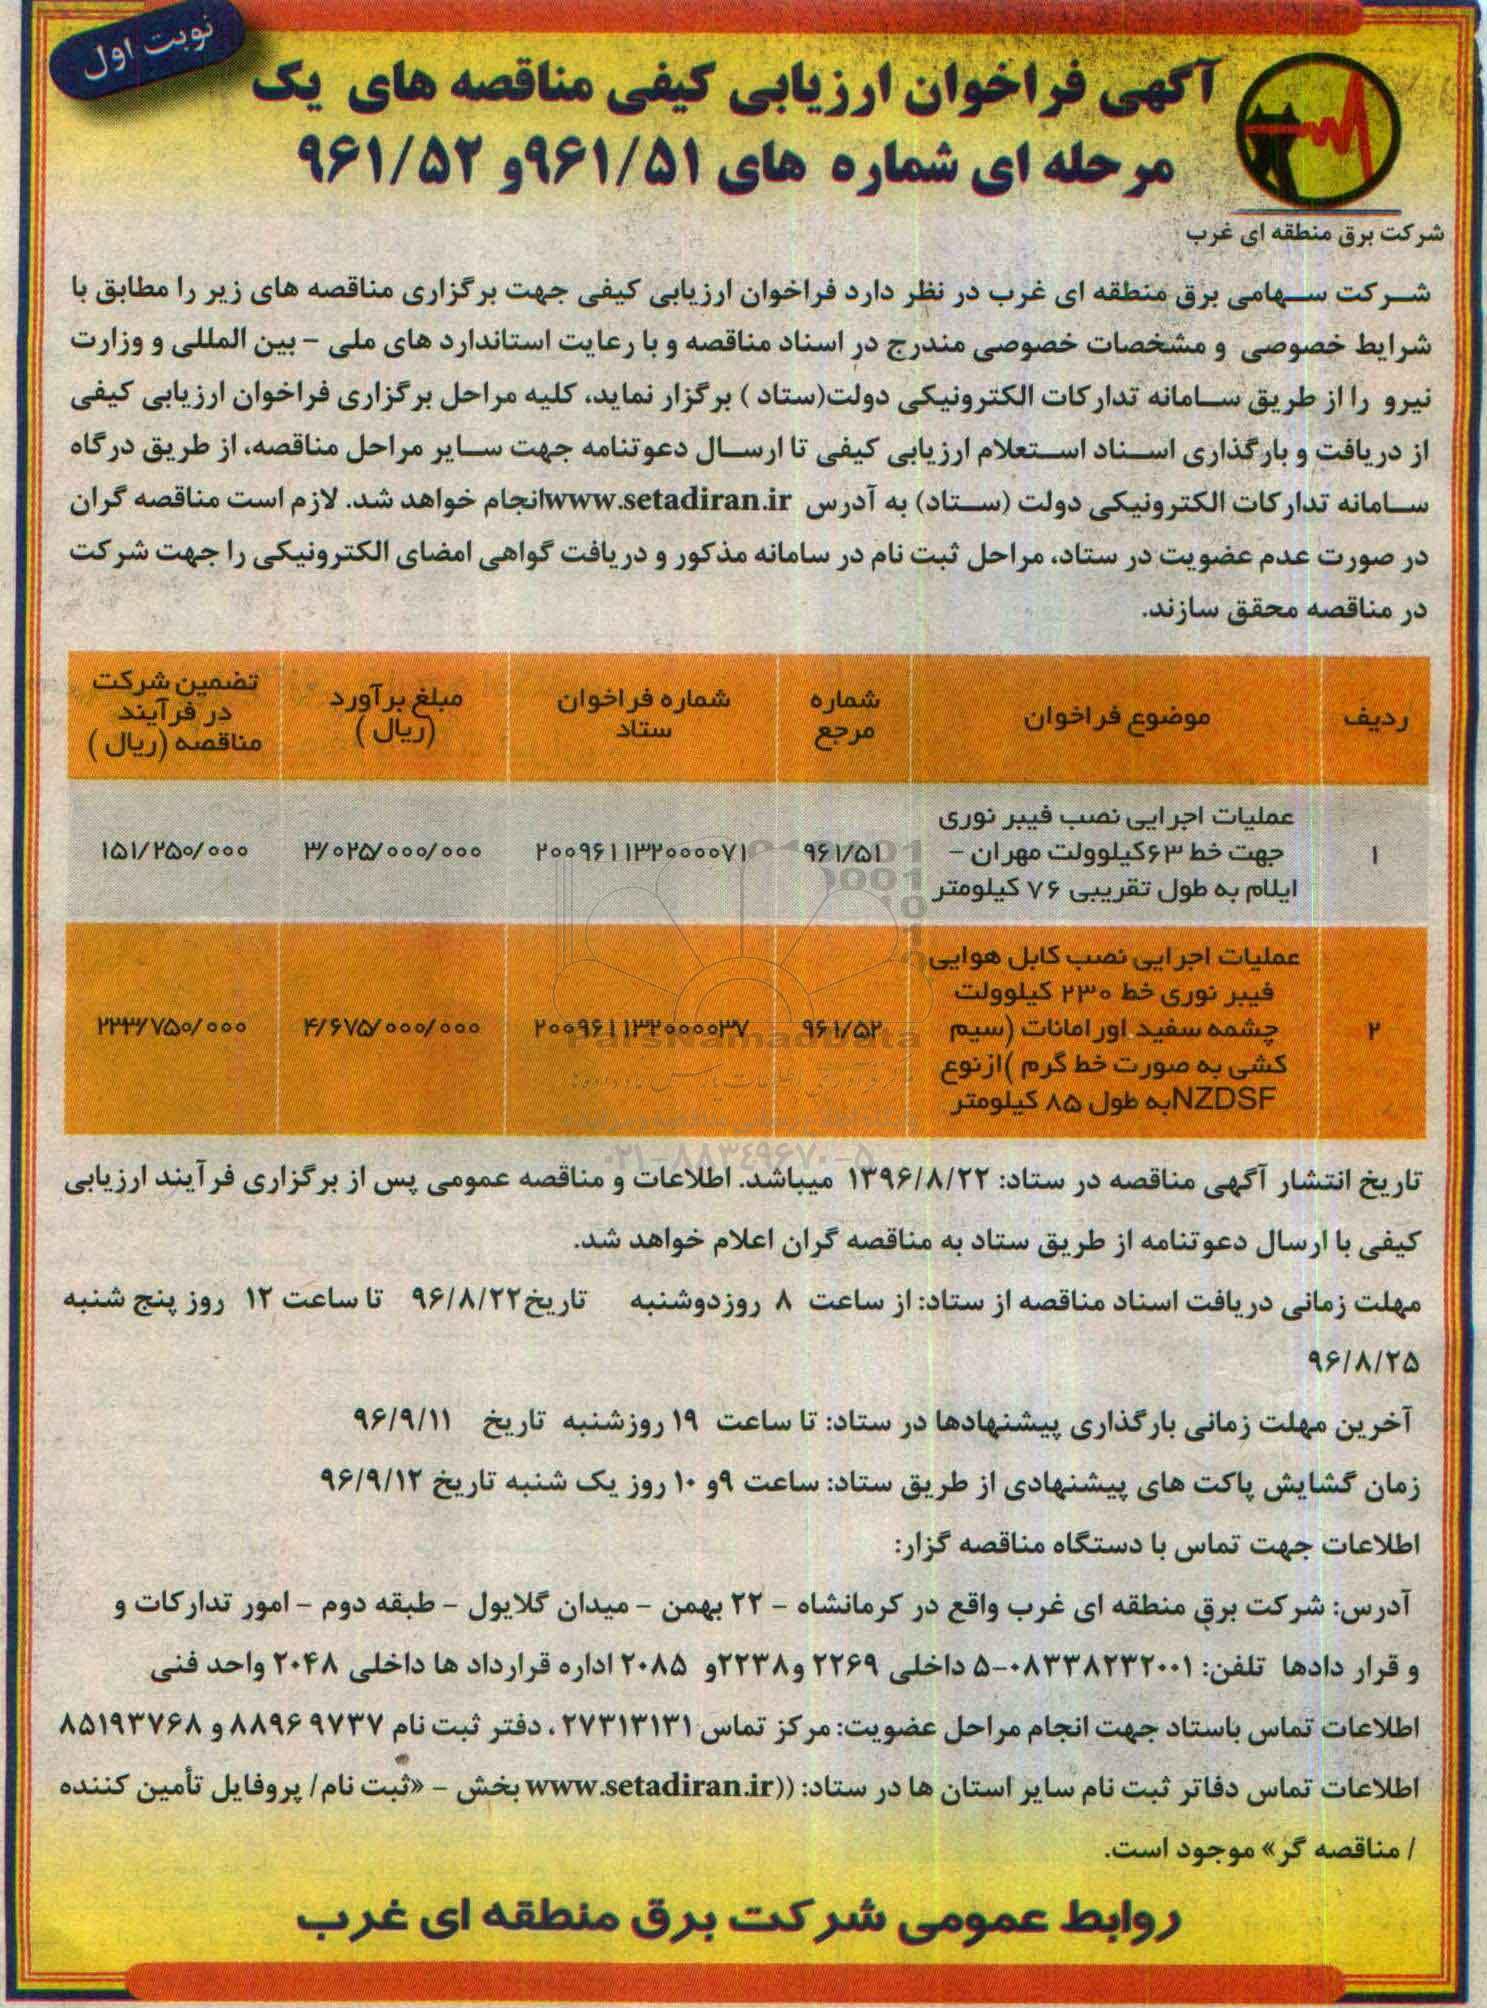 نوبت اول
آگهی فراخوان ارزیابی کیفی مناقصه های یک
مرحله ای شماره های ۹۶۱/۵۱و ۹۶۱/۵۲
شرکت برق منطقه ای غرب
شرکت سهامی برق منطقه ای غرب در نظر دارد فراخوان ارزیابی کیفی جهت برگزاری مناقصه های زیر را مطابق با
شرایط خصوصی و مشخصات خصوصی مندرج در اسناد مناقصه و با رعایت استاندارد های ملی - بین المللی و وزارت
نیرو را از طریق سامانه تدارکات الکترونیکی دولت(ستاد ) برگزار نماید، کلیه مراحل برگزاری فراخوان ارزیابی کیفی
از دریافت و بارگذاری اسناد استعلام ارزیابی کیفی تا ارسال دعوتنامه جهت سایر مراحل مناقصه، از طریق درگاه
سامانه تدارکات الکترونیکی دولت (ستاد) به آدرس www.setadiran.irانجام خواهد شد. لازم است مناقصه گران
در صورت عدم عضویت در ستاد، مراحل ثبت نام در سامانه مذکور و دریافت گواهی امضای الکترونیکی را جهت شرکت
در مناقصه محقق سازند.
ردیف
موضوع فراخوان
شماره
مرجع
شماره فراخوان
ستاد
مبلغ برآورد
(ریال )
تضمین شرکت
در فرآیند
مناقصه (ریال )
۱
عملیات اجرایی نصب فیبر نوری
جهت خط ۶۳کیلوولت مهران -
ایلام به طول تقریبی ۷۶ کیلومتر
۹۶۱/۵۱
۲۰۰۹۶۱۱۳۲۰۰۰۰۷۱
۳/۰۲۵/۰۰۰/۰۰۰
۱۵۱/۲۵۰/۰۰۰
۲
عملیات اجرایی نصب کابل هوایی
فیبر نوری خط ۲۳۰ کیلوولت
چشمه سفید اورامانات (سیم
کشی به صورت خط گرم )ازنوع
NZDSFبه طول ۸۵ کیلومتر
۹۶۱/۵۲
۲۰۰۹۶۱۱۳۲۰۰۰۰۳۷
۴/۶۷۵/۰۰۰/۰۰۰
۲۳۳/۷۵۰/۰۰۰
ParsNamadData
۰۲۱-۸۸۳۴۹۶۷۰-۵
تاریخ انتشار آگهی مناقصه در ستاد: ۱۳۹۶/۸/۲۲ میباشد. اطلاعات و مناقصه عمومی پس از برگزاری فرآیند ارزیابی
کیفی با ارسال دعوتنامه از طریق ستاد به مناقصه گران اعلام خواهد شد.
مهلت زمانی دریافت اسناد مناقصه از ستاد: از ساعت ۸ روزدوشنبه تاریخ۹۶/۸/۲۲ تا ساعت ۱۲ روز پنج شنبه
۹۶/۸/۲۵
آخرین مهلت زمانی بارگذاری پیشنهادها در ستاد: تا ساعت ۱۹ روزشنبه تاریخ ۹۶/۹/۱۱
زمان گشایش پاکت های پیشنهادی از طریق ستاد: ساعت ۹و ۱۰ روز یک شنبه تاریخ ۹۶/۹/۱۲
اطلاعات جهت تماس با دستگاه مناقصه گزار:
آدرس: شرکت برق منطقه ای غرب واقع در کرمانشاه - ۲۲ بهمن - میدان گلایول - طبقه دوم - امور تدارکات و
و قرار دادها تلفن: ۰۸۳۳۸۲۳۲۰۰۱-۵ داخلی ۲۲۶۹ و۲۲۳۸و ۲۰۸۵ اداره قرارداد ها داخلی ۲۰۴۸ واحد فنی
اطلاعات تماس باستاد جهت انجام مراحل عضویت: مرکز تماس ۲۷۳۱۳۱۳۱ ، دفتر ثبت نام ۸۸۹۶۹۷۳۷ و ۸۵۱۹۳۷۶۸
اطلاعات تماس دفاتر ثبت نام سایر استان ها در ستاد: ((www.setadiran.ir بخش - «ثبت نام/ پروفایل تأمین کننده
/ مناقصه گر» موجود است.
روابط عمومی شرکت برق منطقه ای غرب